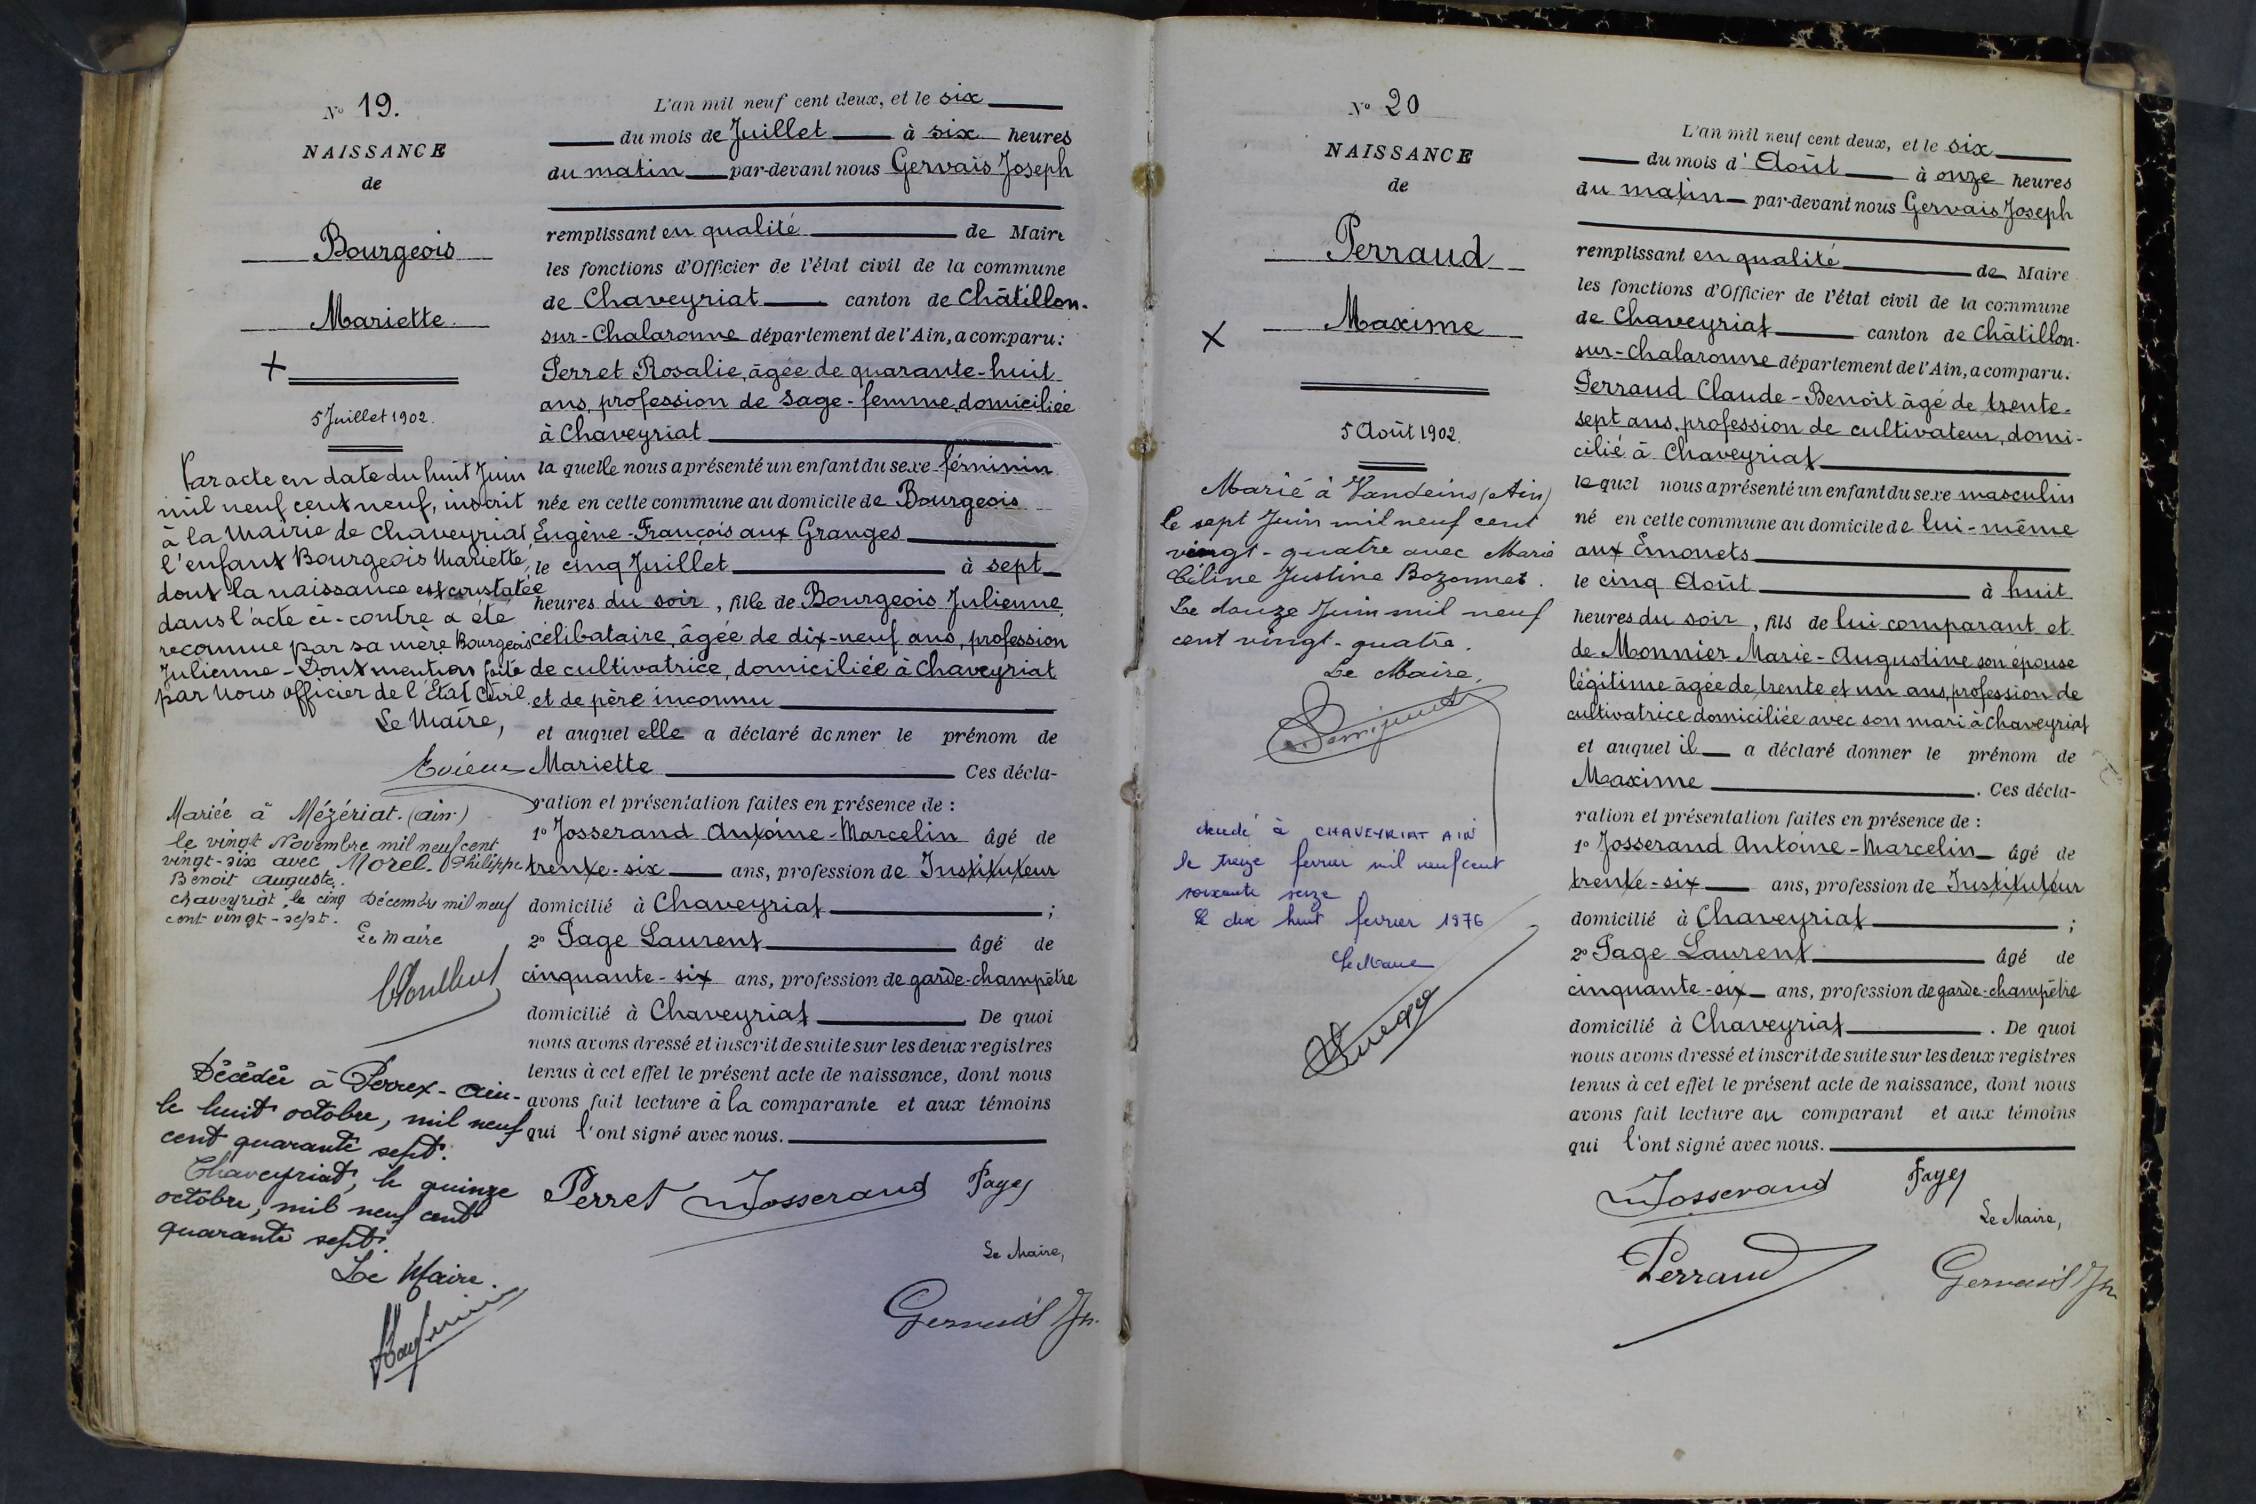 N° 19.
NAISSANCE
de
Bourgeois
Mariette
5 Juillet 1902.
Par acte en date du huit Juin
mil neuf cent neuf, inscrit
à la Mairie de Chaveyriat,
l'enfant Bourgeois Mariette,
dont la naissance est constatée
dans l'acte ci-contre a été
reconnue par sa mère Bourgeois
Julienne - Dont mention faite
par Nous officier de l'Etat Civil
Le Maire,
Mariée à Mézériat. (Ain)
le vingt Novembre mil neuf cent
vingt-six avec Morel Philippe
Benoit Auguste.
Chaveyriat, le cinq Décembre mil neuf
cent vingt-sept.
Le Maire
Décédée à Perrex - Ain -
le huit octobre, mil neuf
cent quarante sept.
Chaveyriat, le quinze
octobre, mil neuf cent
quarante sept.
Le Maire.
L'an mil neuf cent deux, et le six
du mois de Juillet à six heures
du matin par-devant nous Gervais Joseph
remplissant en qualité de Maire
les fonctions d'Officier de l'état civil de la commune
de Chaveyriat canton de Châtillon-
sur-Chalaronne département de l'Ain, a comparu:
Perret Rosalie, âgée de quarante-huit
ans, profession de Sage-femme, domiciliée
à Chaveyriat
la quelle nous a présenté un enfant du sexe féminin
née en cette commune au domicile de Bourgeois
Eugène-François aux Granges
le cinq Juillet à sept
heures du soir, fille de Bourgeois Julienne,
célibataire, âgée de dix-neuf ans, profession
de cultivatrice, domiciliée à Chaveyriat
et de père inconnu
et auquel elle a déclaré donner le prénom de
Mariette Ces décla-
ration et présentation faites en présence de :
1° Josserand Antoine-Marcelin âgé de
trente-six ans, profession de Instituteur
domicilié à Chaveyriat ;
2° Page Laurent âgé de
cinquante-six ans, profession de garde-champêtre
domicilié à Chaveyriat De quoi
nous avons dressé et inscrit de suite sur les deux registres
tenus à cet effet le présent acte de naissance, dont nous
avons fait lecture à la comparante et aux témoins
qui l'ont signé avec nous.
Perret Josserand Page
Le Maire,
Gervais Jh.
N° 20
NAISSANCE
de
Perraud
Maxime
5 Août 1902.
Marié à Vandeins (Ain)
le sept Juin mil neuf cent
vingt-quatre avec Marie
Céline Justine Bozonnet.
Le douze Juin mil neuf
cent vingt-quatre.
Le Maire,
décédé à CHAVEYRIAT AIN
le treize fevrier mil neuf cent
soixante seize
Le dix huit fevrier 1976
Le Maire
L'an mil neuf cent deux, et le six
du mois d'Août à onze heures
du matin par-devant nous Gervais Joseph
remplissant en qualité de Maire
les fonctions d'Officier de l'état civil de la commune
de Chaveyriat canton de Châtillon-
sur-Chalaronne département de l'Ain, a comparu:
Perraud Claude-Benoît âgé de trente-
sept ans, profession de cultivateur, domi-
cilié à Chaveyriat
lequel nous a présenté un enfant du sexe masculin
né en cette commune au domicile de lui-même
aux Emonets
le cinq Août à huit
heures du soir, fils de lui comparant et
de Monnier Marie-Augustine son épouse
légitime âgée de trente et un ans, profession de
cultivatrice domiciliée avec son mari à Chaveyriat
et auquel il a déclaré donner le prénom de
Maxime . Ces décla-
ration et présentation faites en présence de :
1° Josserand Antoine-Marcelin âgé de
trente-six ans, profession de Instituteur
domicilié à Chaveyriat ;
2° Page Laurent âgé de
cinquante-six ans, profession de garde-champêtre
domicilié à Chaveyriat . De quoi
nous avons dressé et inscrit de suite sur les deux registres
tenus à cet effet le présent acte de naissance, dont nous
avons fait lecture au comparant et aux témoins
qui l'ont signé avec nous.
Josserand Page
Le Maire,
Perraud Gervais Jh